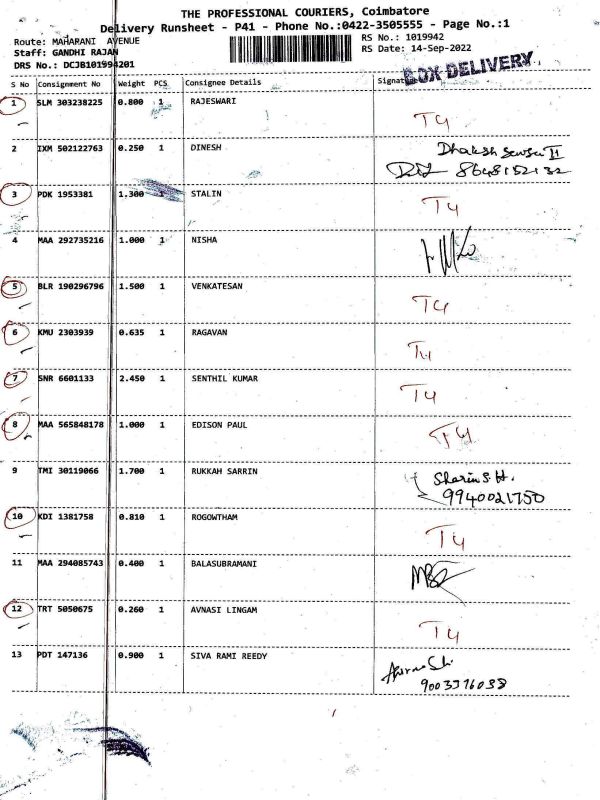 THE PROFESSIONAL COURIERS, Coimbatore
Delivery Runsheet - P41 - Phone No.:0422-3505555 - Page No.:1
Route: MAHARANI AVENUE RS No.: 1019942
Staff: GANDHI RAJAN RS Date: 14-Sep-2022
DRS No.: DCJB101994201
BOX DELIVERY
S No Consignment No Weight PCS Consignee Details Signat
1 SLM 303238225 0.800 1 RAJESWARI T4
2 IXM 502122763 0.250 1 DINESH Dhaksh
8648152132
3 PDK 1953381 1.300 1 STALIN T4
4 MAA 292735216 1.000 1 NISHA
5 BLR 190296796 1.500 1 VENKATESAN T4
6 KMU 2303939 0.635 1 RAGAVAN T4
7 SNR 6601133 2.450 1 SENTHIL KUMAR T4
8 MAA 565848178 1.000 1 EDISON PAUL T4
9 TMI 30119066 1.700 1 RUKKAH SARRIN Sharin S.H.
9940021750
10 KDI 1381758 0.810 1 ROGOWTHAM T4
11 MAA 294085743 0.400 1 BALASUBRAMANI
12 TRT 5050675 0.260 1 AVNASI LINGAM T4
13 PDT 147136 0.900 1 SIVA RAMI REEDY
9003376038